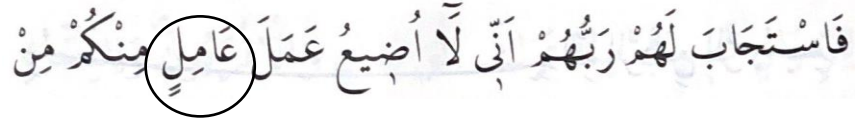 فَاسْتَجَابَ لَهُمْ رَبُّهُمْ اَنّٖى لَٓا اُضٖيعُ عَمَلَ عَامِلٍ مِنْكُمْ مِنْ